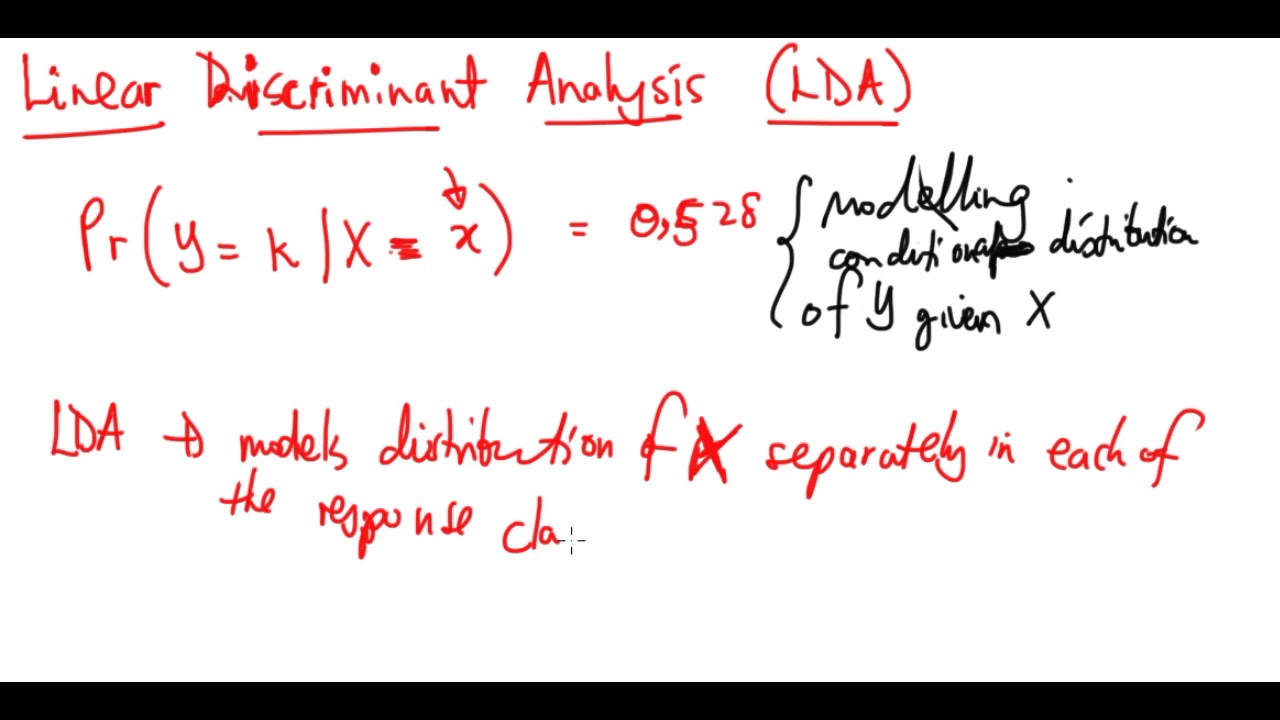 Linear Discriminant Analysis (LDA)
Pr(Y = k | X = x) = 0,528
modelling
conditional distribution
of Y given X
LDA → models distribution of X separately in each of
the response cla